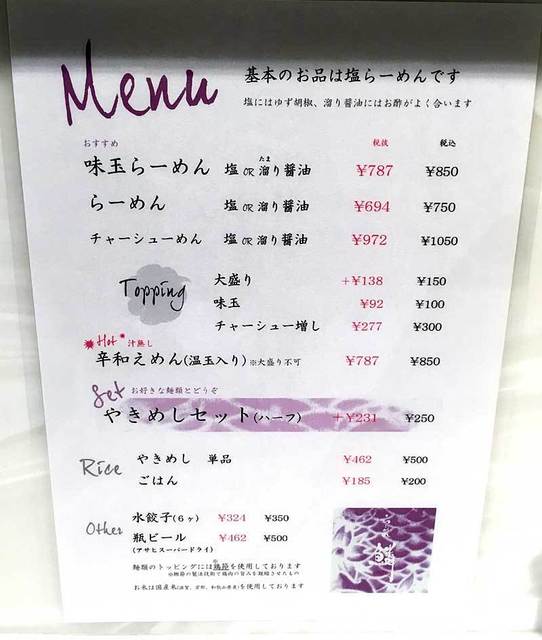 Menu
基本のお品は塩らーめんです
塩にはゆず胡椒、溜り醤油にはお酢がよく合います
おすすめ 税抜 税込
味玉らーめん 塩 OR 溜り醤油 ¥787 ¥850
たま
らーめん 塩 OR 溜り醤油 ¥694 ¥750
チャーシューめん 塩 OR 溜り醤油 ¥972 ¥1050
Topping
大盛り +¥138 ¥150
味玉 ¥92 ¥100
チャーシュー増し ¥277 ¥300
Hot 汁無し
辛和えめん(温玉入り) ※大盛り不可 ¥787 ¥850
Set お好きな麺類とどうぞ
やきめしセット(ハーフ) +¥231 ¥250
Rice
やきめし 単品 ¥462 ¥500
ごはん ¥185 ¥200
Other
水餃子(6ヶ) ¥324 ¥350
瓶ビール ¥462 ¥500
(アサヒスーパードライ)
麺類のトッピングには鶏節を使用しております
※鰹節の製法技術で鶏肉の旨みを凝縮させたもの
お米は国産米(滋賀、京都、和歌山県産)を使用しております